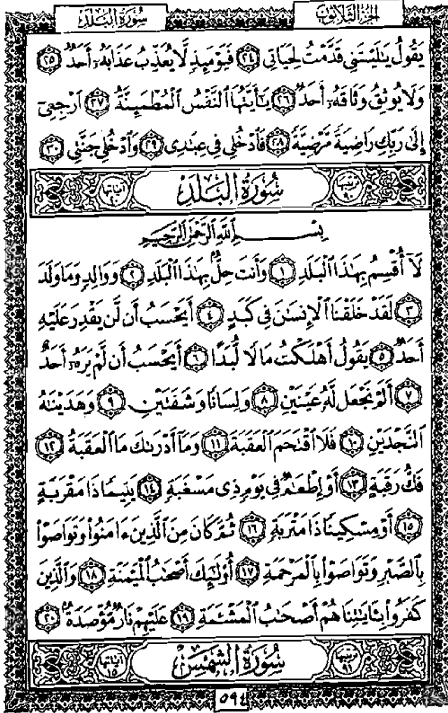 الجزء الثلاثون
سورة البلد
يَقُولُ يَٰلَيْتَنِي قَدَّمْتُ لِحَيَاتِي ٢٤ فَيَوْمَئِذٍ لَّا يُعَذِّبُ عَذَابَهُۥٓ أَحَدٌ ٢٥
وَلَا يُوثِقُ وَثَاقَهُۥٓ أَحَدٌ ٢٦ يَٰٓأَيَّتُهَا ٱلنَّفْسُ ٱلْمُطْمَئِنَّةُ ٢٧ ٱرْجِعِىٓ
إِلَىٰ رَبِّكِ رَاضِيَةً مَّرْضِيَّةً ٢٨ فَٱدْخُلِى فِى عِبَٰدِى ٢٩ وَٱدْخُلِى جَنَّتِى ٣٠
ترتيبها ٩٠ سُورَةُ ٱلْبَلَدِ آياتها ٢٠
بِسْمِ ٱللَّهِ ٱلرَّحْمَٰنِ ٱلرَّحِيمِ
لَآ أُقْسِمُ بِهَٰذَا ٱلْبَلَدِ ١ وَأَنتَ حِلٌّۢ بِهَٰذَا ٱلْبَلَدِ ٢ وَوَالِدٍ وَمَا وَلَدَ
٣ لَقَدْ خَلَقْنَا ٱلْإِنسَٰنَ فِى كَبَدٍ ٤ أَيَحْسَبُ أَن لَّن يَقْدِرَ عَلَيْهِ
أَحَدٌ ٥ يَقُولُ أَهْلَكْتُ مَالًا لُّبَدًا ٦ أَيَحْسَبُ أَن لَّمْ يَرَهُۥٓ أَحَدٌ
٧ أَلَمْ نَجْعَل لَّهُۥ عَيْنَيْنِ ٨ وَلِسَانًا وَشَفَتَيْنِ ٩ وَهَدَيْنَٰهُ
ٱلنَّجْدَيْنِ ١٠ فَلَا ٱقْتَحَمَ ٱلْعَقَبَةَ ١١ وَمَآ أَدْرَىٰكَ مَا ٱلْعَقَبَةُ ١٢
فَكُّ رَقَبَةٍ ١٣ أَوْ إِطْعَٰمٌ فِى يَوْمٍ ذِى مَسْغَبَةٍ ١٤ يَتِيمًا ذَا مَقْرَبَةٍ
١٥ أَوْ مِسْكِينًا ذَا مَتْرَبَةٍ ١٦ ثُمَّ كَانَ مِنَ ٱلَّذِينَ ءَامَنُوا۟ وَتَوَاصَوْا۟
بِٱلصَّبْرِ وَتَوَاصَوْا۟ بِٱلْمَرْحَمَةِ ١٧ أُو۟لَٰٓئِكَ أَصْحَٰبُ ٱلْمَيْمَنَةِ ١٨ وَٱلَّذِينَ
كَفَرُوا۟ بِـَٔايَٰتِنَا هُمْ أَصْحَٰبُ ٱلْمَشْـَٔمَةِ ١٩ عَلَيْهِمْ نَارٌ مُّؤْصَدَةٌۢ ٢٠
ترتيبها ٩١ سُورَةُ ٱلشَّمْسِ آياتها ١٥
٥٩٤